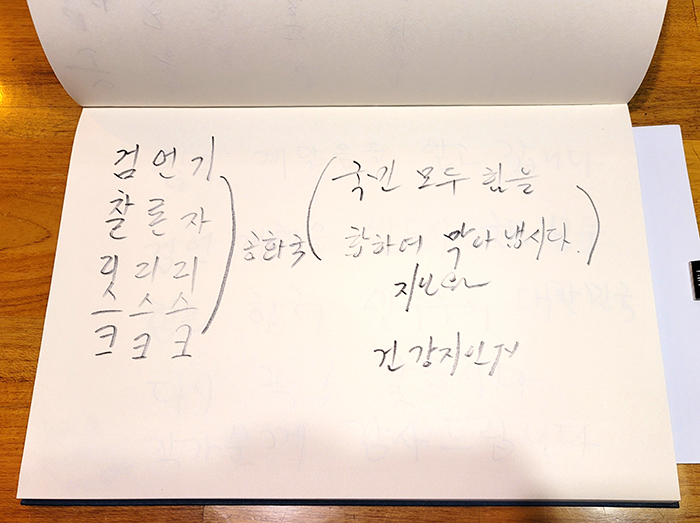 검 언 기
찰 론 자
리 리 리
스 스 스
크 크 크
공화국
(국민 모두 힘을
합하여 막아 냅시다.)
지인
건강지인TV